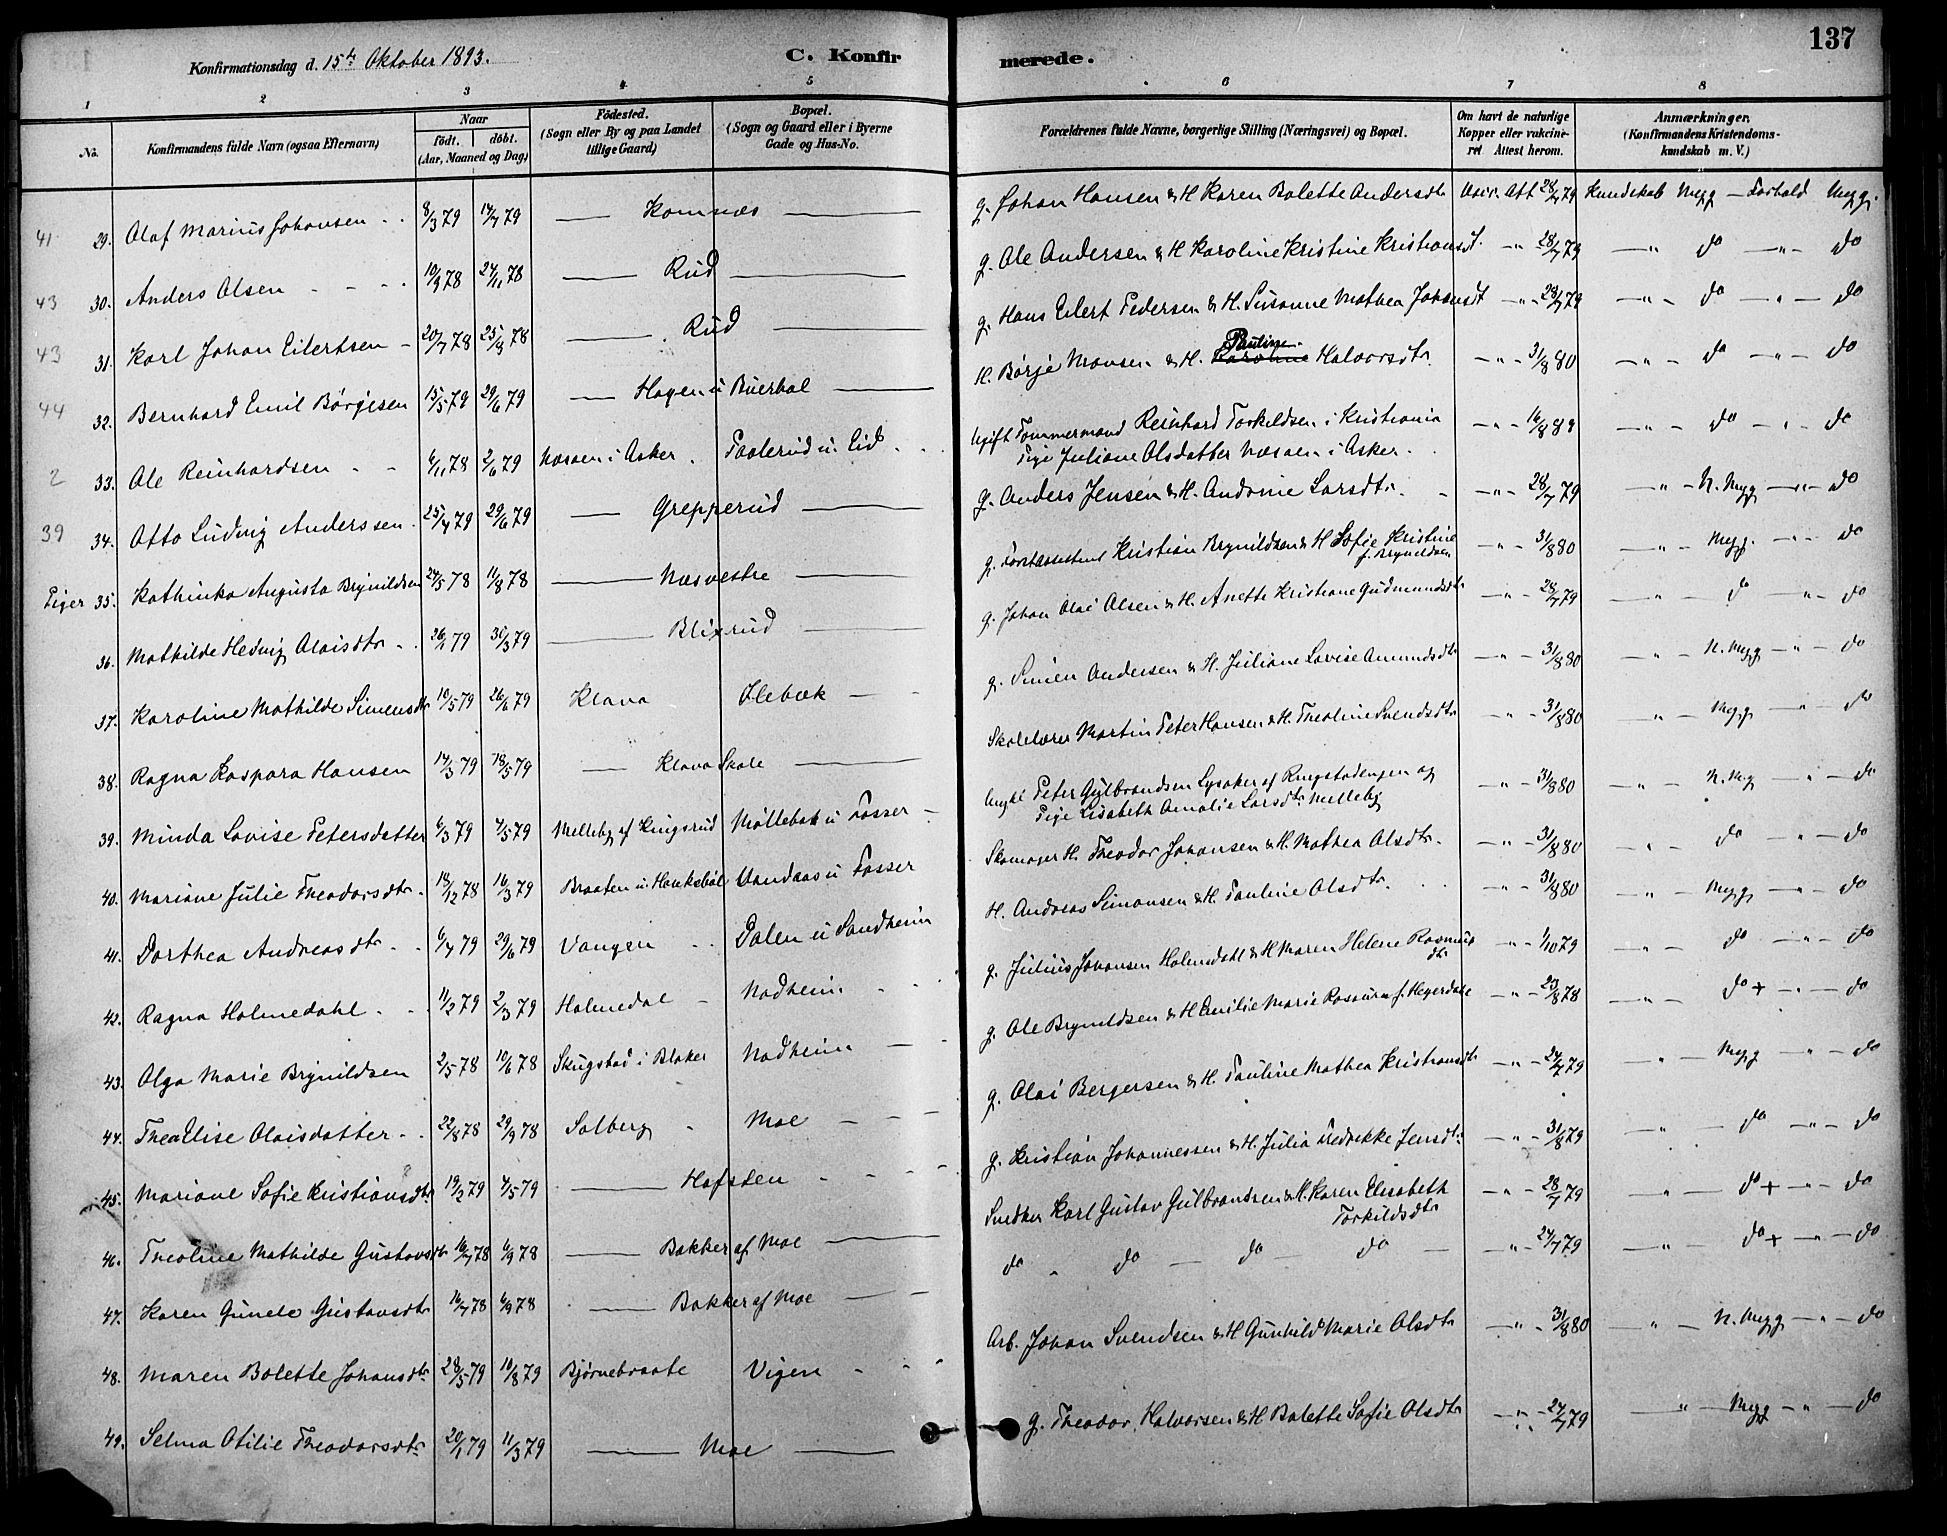 137
Konfirmationsdag d. 15de Oktober 1893. C. Konfirmerede.
1 2 3 4 5 6 7 8
No. Konfirmandens fulde Navn (ogsaa Efternavn) Naar født. døbt. (Aar, Maaned og Dag) Fødested. (Sogn eller By og paa Landet tillige Gaard) Bopæl. (Sogn og Gaard eller i Byerne Gade og Hus-No. Forældrenes fulde Navne, borgerlige Stilling (Næringsvei) og Bopæl. Om havt de naturlige Kopper eller vakcineret Attest herom. Anmærkninger. (Konfirmandens Kristendomskundskab m. V.)
41 29. Olaf Marius Johansen 8/3 79 14/7 79 — Komnæs — g. Johan Hansen & H Karen Bolette Andersdtr Att 28/7 79 Kundskab Megg — Forhold Megg.
43 30. Anders Olsen 10/9 78 24/11 78 — Rud — g. Ole Andersen & H Karoline Kristine Kristiansdt. — " — 28/7 79 — " do — " — do
43 31. Karl Johan Eilertsen 20/7 78 25/8 78 — Rud — g. Hans Eilert Pedersen & H. Susanne Mathea Johansdt — " — 28/7 79 — " — do — " — do
44 32. Bernhard Emil Børgesen 15/5 79 29/6 79 — Hagen u Buerbøl — H. Børje Monsen & H. Pauline Halvorsdtr. — " — 31/8 80 — " — do — " — do
2 33. Ole Reinhardsen 6/11 78 2/6 79 Næsøen i Asker Paalerud u. Eid Ugift Tømmermand Reinhard Torkildsen i Kristiania
Pige Juliane Olsdatter Næsøen i Asker. — " — 16/8 89 — " — do — " — do
39 34. Otto Ludvig Anderssen 25/4 79 29/6 79 — Grepperud — g. Anders Jensen & H. Andrine Larsdtr. — " — 28/7 79 — " — N. Megg — " — do
Piger 35. Kathinka Augusta Brynildsen 24/5 78 11/8 78 — Næsvestre — g. Forstassistent Kristian Brynildsen & H Sofie Kristine
f. Brynildsen — " — 31/8 80 — " — Megg. — " — do
36. Mathilde Hedvig Olaisdtr 26/1 79 30/3 79 — Blixrud — g. Johan Olai Olsen & H. Anette Kristiane Gudmundsdtr — " — 28/7 79 — " — do — " — do
37. Karoline Mathilde Simensdtr 10/5 79 26/6 79 Klava Ilebæk — g. Simen Andersen & H. Juliane Lovise Amundsdtr — " — 31/8 80 — " — N. Megg — " — do
38. Ragna Kaspara Hansen 14/3 79 18/5 79 — Klava Skole — Skolelærer Martin Peter Hansen & H. Theoline Svendsdtr — " — 31/8 80 " — Megg — " — do
39. Minda Lovise Petersdatter 6/3 79 4/5 79 Melleby af Kingsrud Møllebak u Fosser — Ungkl Peter Gulbrandsen Lysaker af Ringstadengen og
Pige Lisabeth Amalie Larsdtr Melleby — " — 31/8 80 — " — N. Mg — " — do
40. Mariane Julie Theodorsdtr. 18/12 78 16/3 79 Braaten u. Haneksbøl Vandaas u Fosser Skomager H. Theodor Johansen & H. Mathea Olsdtr. — " — 31/8 80 — " — do — " — do
41. Dorthea Andreasdtr 6/4 79 29/6 79 Vangen Dalen u Sandheim H. Andreas Simonsen & H. Pauline Olsdtr. — " — 31/8 80 — " — Megg — " — do
42. Ragna Holmedahl 11/2 79 2/3 79 Holmedal Nadheim g. Julius Johansen Holmedahl & H Maren Helene Rasmus
dtr — " — 1/10 79 — " — do — " — do
43. Olga Marie Brynildsen 2/5 78 10/6 78 Skugstad i Blaker Nadheim — g. Ole Brynildsen & H Emilie Marie Rosaura f. Hegerdahl — " — 23/8 78 — " — do + — " — do
44. Thea Elise Olaisdatter 22/8 78 29/9 78 Solberg Moe — g. Olai Bergersen & H. Pauline Mathea Kristiansdtr — " — 24/7 79 — " — Megg — " — do
45. Mariane Sofie Kristiansdtr 19/2 79 4/5 79 — Hofsten g. Kristian Johannessen & H. Julia Fredrikke Jensdtr. — " — 31/8 79 — " — do — " — do
46. Theoline Mathilde Gustavsdtr 16/7 78 6/9 78 — Bakker af Moe — Snedker Karl Gustav Gulbrandsen & H. Karen Elisabeth
Torkildsdtr — " — 28/7 79 " — do + — " — do
47. Karen Gunele Gustavsdtr 16/7 78 6/9 78 — Bakker af Moe — do do do do — " — 24/7 79 — " — do + — " — do
48. Maren Bolette Johansdtr. 28/5 79 10/8 79 Bjørnebraate Vigen Arb. Johan Svendsen & H Gunhild Marie Olsdtr — " — 31/8 80 — " — N. Megg — " — do
49. Selma Otilie Theodorsdtr 20/1 79 11/3 79 — Moe — g. Theodor Halvorsen & H Bolette Sofie Olsdtr — " — 24/7 79 — " — Megg — " — do